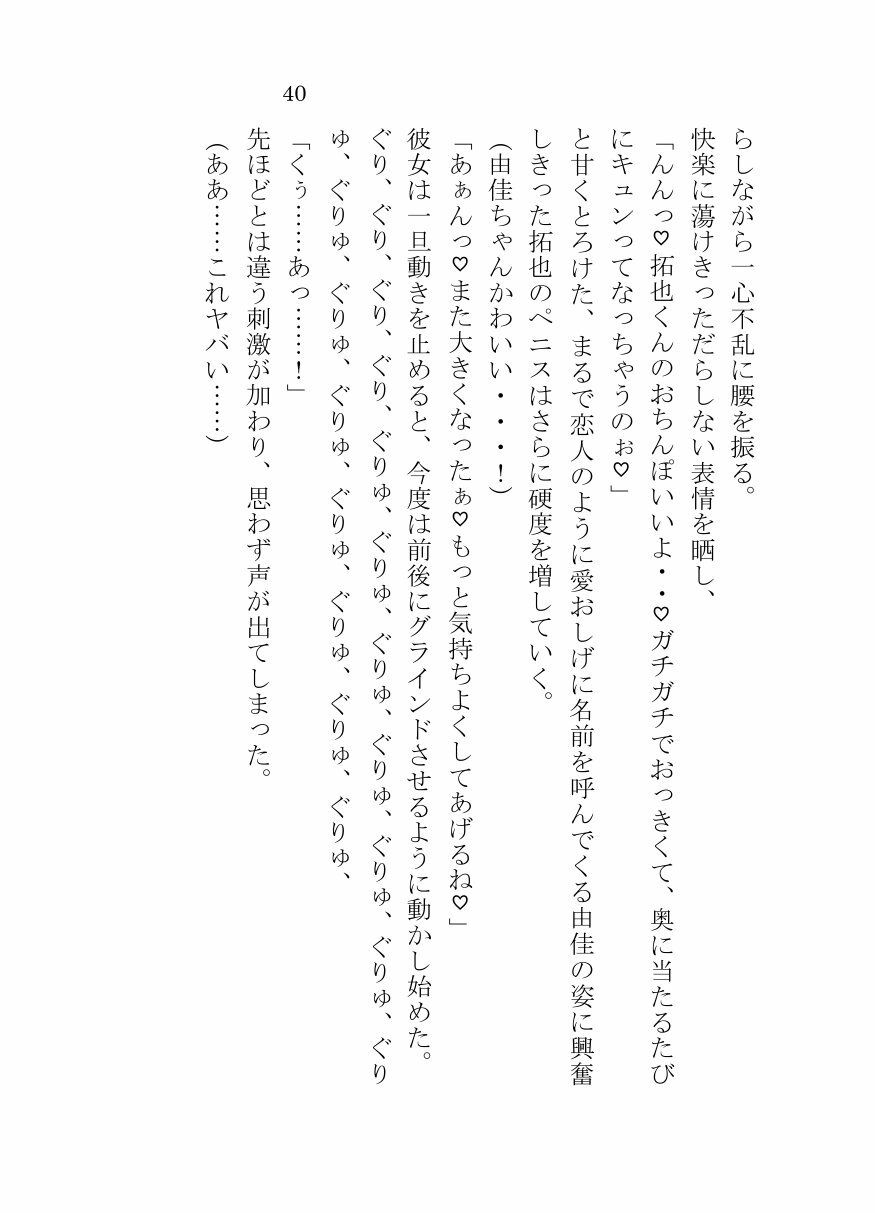 40
らしながら一心不乱に腰を振る。
快楽に蕩けきっただらしない表情を晒し、
「んんっ♡拓也くんのおちんぽいいよ・・♡ガチガチでおっきくて、奥に当たるたび
にキュンってなっちゃうのぉ♡」
と甘くとろけた、まるで恋人のように愛おしげに名前を呼んでくる由佳の姿に興奮
しきった拓也のペニスはさらに硬度を増していく。
(由佳ちゃんかわいい・・・!)
「あぁんっ♡また大きくなったぁ♡もっと気持ちよくしてあげるね♡」
彼女は一旦動きを止めると、今度は前後にグラインドさせるように動かし始めた。
ぐり、ぐり、ぐり、ぐり、ぐりゅ、ぐりゅ、ぐりゅ、ぐりゅ、ぐりゅ、ぐりゅ、ぐり
ゅ、ぐりゅ、ぐりゅ、ぐりゅ、ぐりゅ、ぐりゅ、ぐりゅ、ぐりゅ、
「くぅ……あっ……!」
先ほどとは違う刺激が加わり、思わず声が出てしまった。
(ああ……これヤバい……)